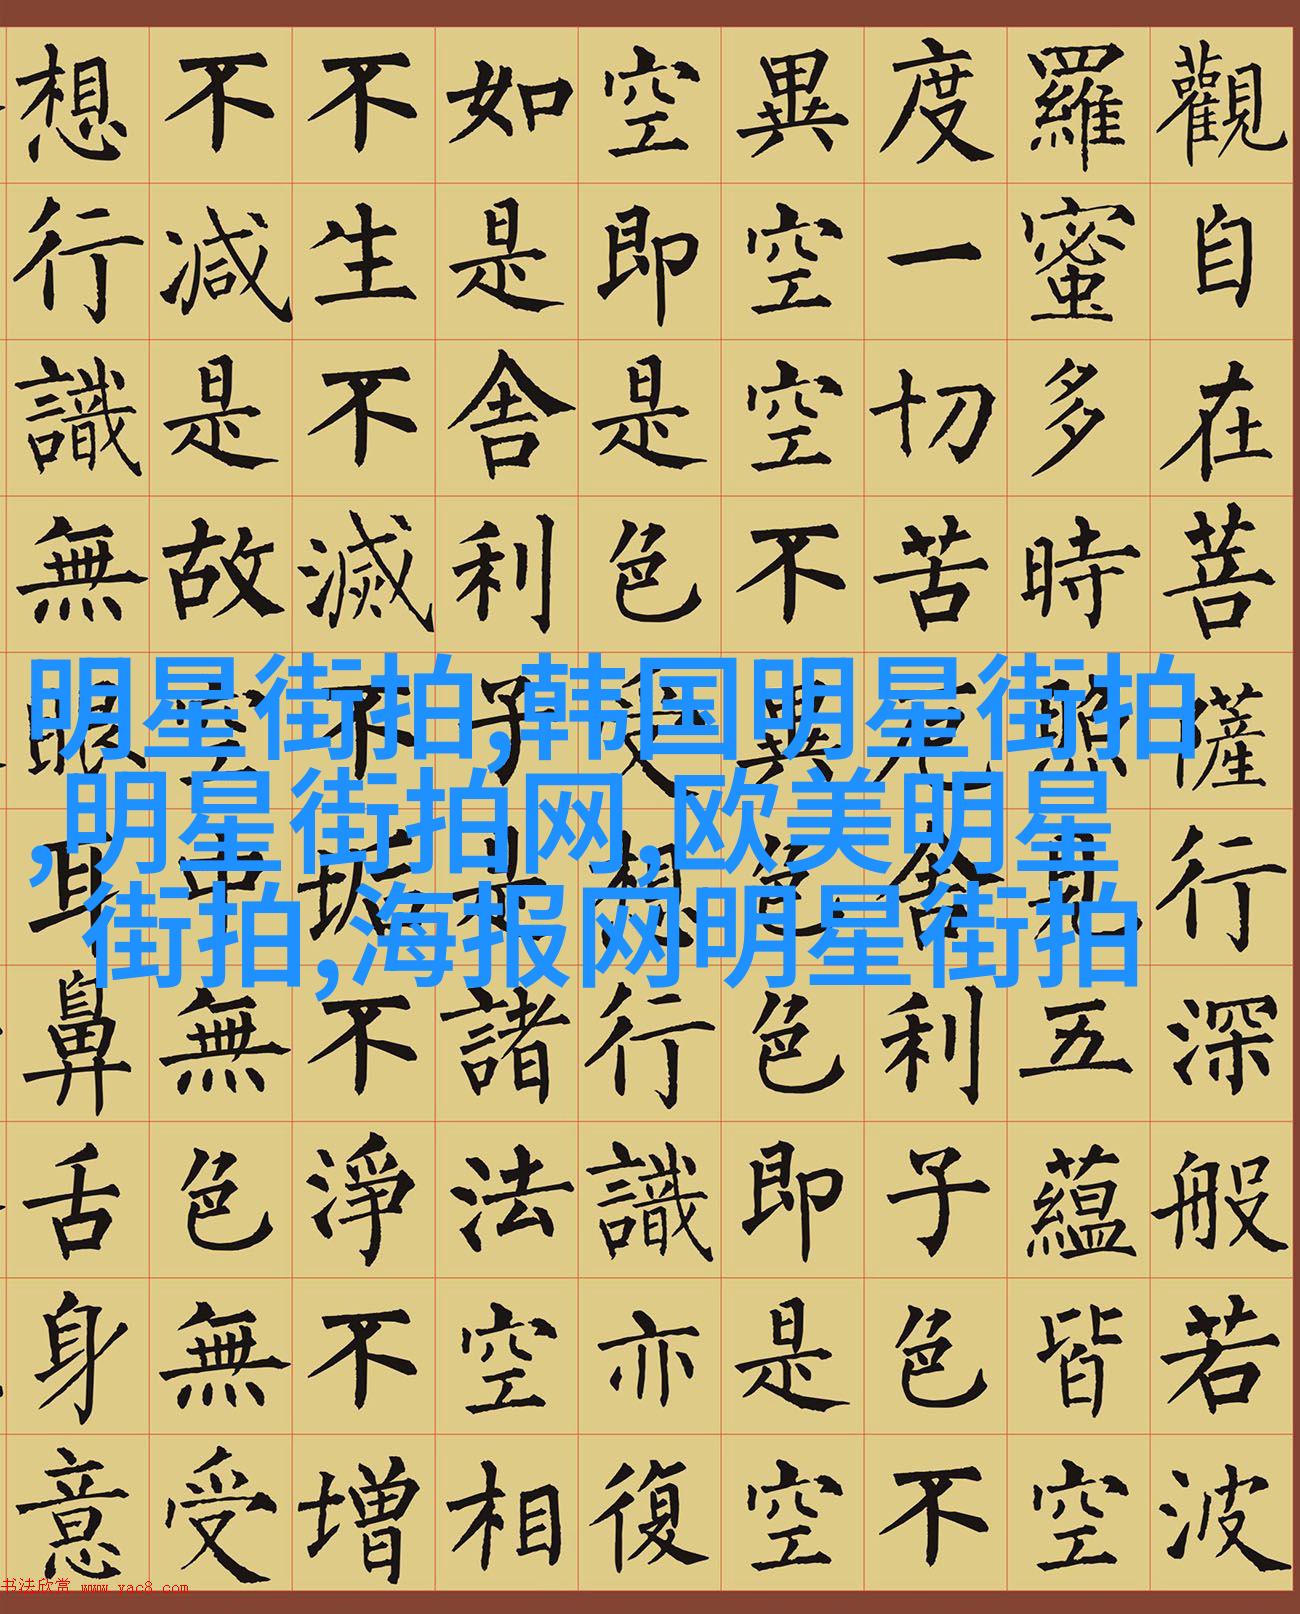 觀自在菩薩行深般若波
羅蜜多時照見五蘊皆空
度一切苦厄舍利子色不
異空空不異色色即是空
空即是色受想行識亦復
如是舍利子是諸法空相
不生不滅不垢不淨不增
不減是故空中無色無受
想行識無眼耳鼻舌身意
明星街拍,韩国明星街拍
,明星街拍网,欧美明星
街拍,海报网明星街拍
书法欣赏 www.yac8.com